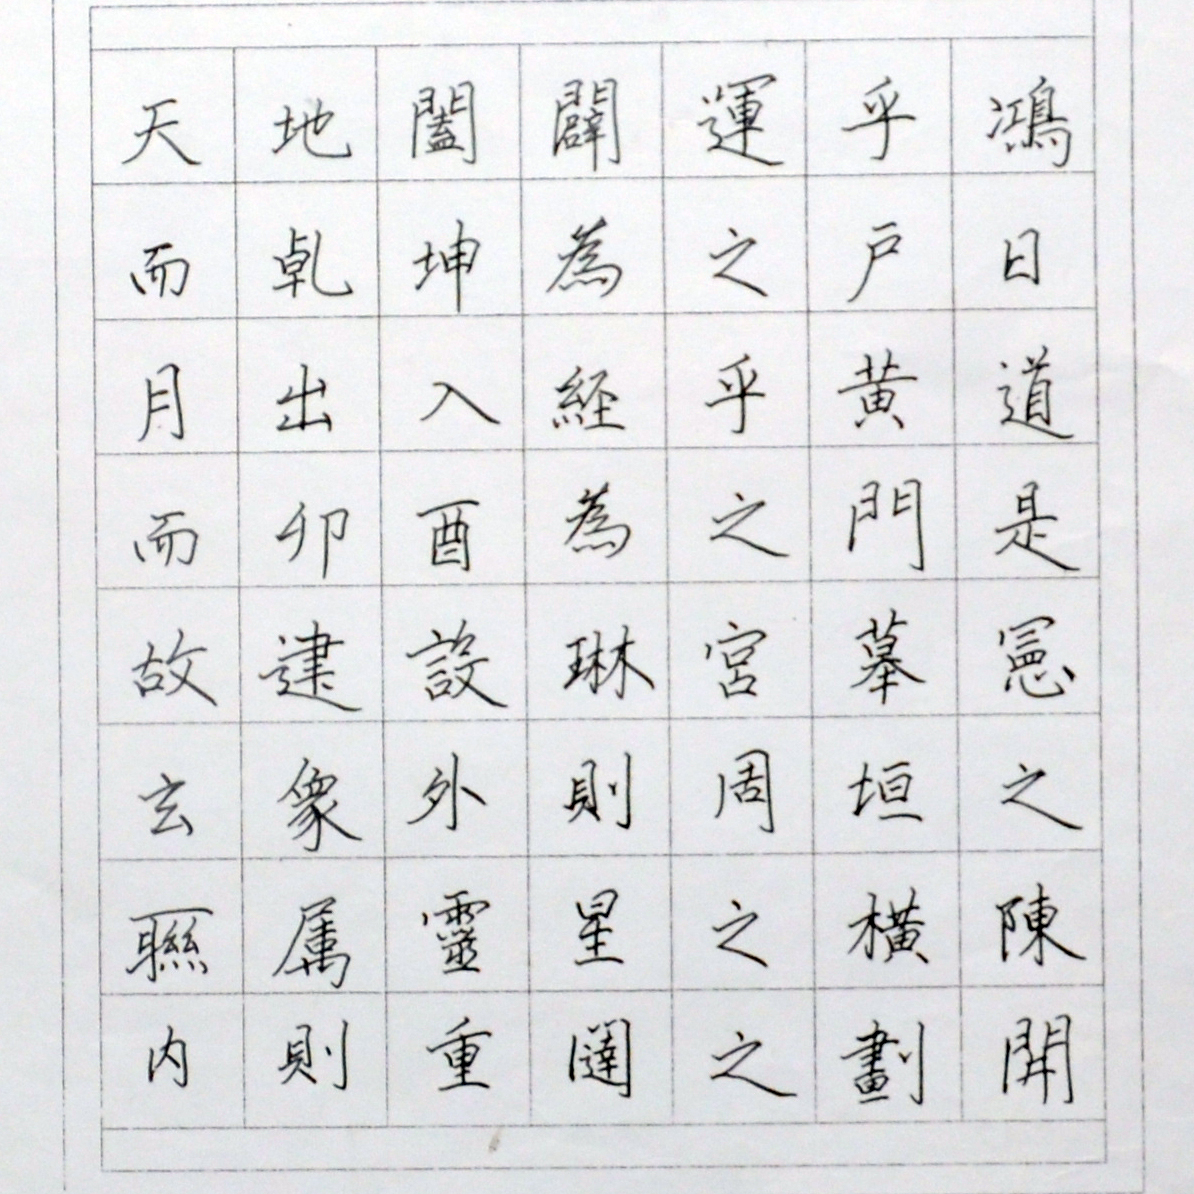 天地闔闢運乎鴻
而乾坤為之户日
月出入経乎黄道
而卯酉為之門是
故建設琳宮摹憲
玄象外則周垣之
聯属靈星之橫陳
内則重闥之劃開